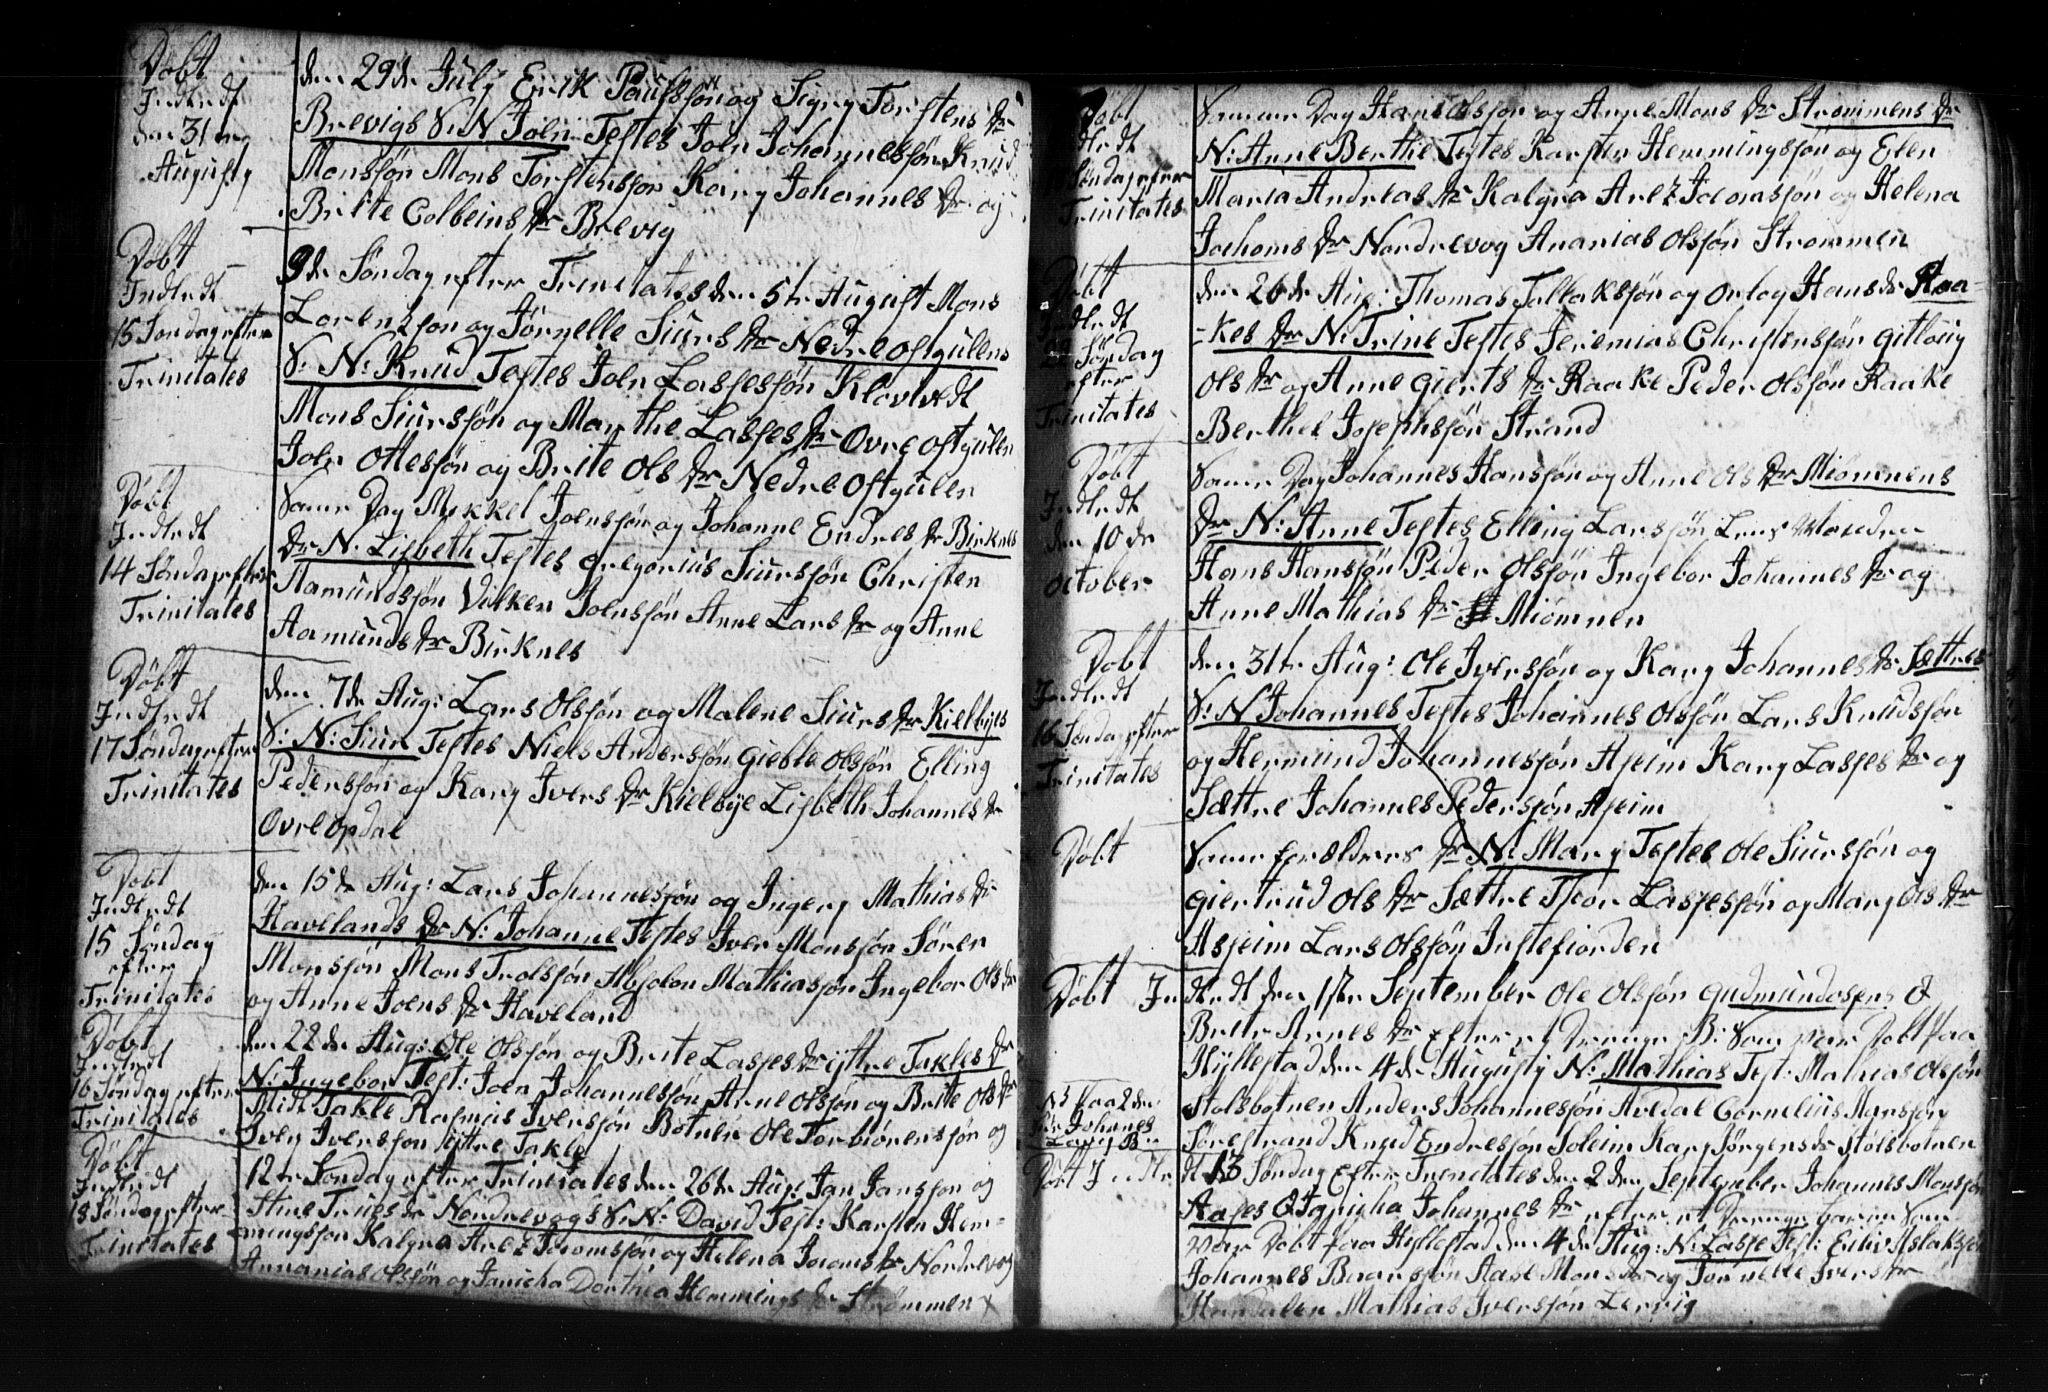 Døbt
Indledt
den 31
Augusty
den 29de July Erik Paulssøn og Sigry Torstens Dr
Brevigs S: N Joen Testes Joen Johannessøn Knud
Monssøn Mons Torstenssøn Kary Johannes Dr og
Brilte Colbeins Dr Brevig
Døbt
Indledt
15 Søndag efter
Trinitates
9de Søndag efter Trinitates den 5te August Mons
Lorentzson og Jørnelle Siurs Dr Nedre Ostgulens
S: N: Knud Testes Joen Lassessøn Klovtvedt
Mons Siurssøn og Marthe Lasses Dr Ovre Ostgulen
Joen Ottessøn og Brite Ols Dr Nedre Ostgulen
Døbt
Indledt
14 Søndag efter
Trinitates
Samme Dag Mikkel Joenssøn og Johanne Endres Dr Birknes
Dr N. Lisbeth Testes Gregorius Siurssøn Christen
Aamundssøn Vilken Joenssøn Anne Lars Dr og Anne
Aamunds Dr Birknes
Døbt
Indledt
17 Søndag efter
Trinitates
den 7de Aug: Lars Olssøn og Malene Siurs Dr Kielbyes
S: N: Siur Testes Niels Anderssøn Gieble Olssøn Elling
Pederssøn og Kary Ivers Dr Kielbye Lisbeth Johannes Dr
Ovre Opdal
Døbt
Indledt
15 Søndag
efter
Trinitates
den 15de Aug: Lars Johannessøn og Ingery Mathias Dr
Havelands Dr N: Johanne Testes Iver Monssøn Søren
Monssøn Mons Trolssøn Absolon Mathiassøn Ingebor Ols Dr
og Anne Joens Dr Haveland
Døbt
Indledt
16 Søndag efter
Trinitates
den 22de Aug: Ole Olssøn og Brite Lasses Dr yttre Takles Dr
N: Ingebor Test: Joen Johannessøn Arne Olssøn og Brite Ols Dr
Midt Takle Rasmus Iverssøn Botnen Ole Torbiørenssøn og
Iver Iverssøn yttre Takle
Døbt
Indledt
18 Søndag efter
Trinitates
12te Søndag efter Trinitates den 26de Aug: Jan Janssøn og
Stine Trues Dr Nordrevogs S: N: David Test: Karsten Hem-
mingssøn Kalgra Arez Jocomssøn og Helena Jocoms Dr Nordrevog
Annanias Olssøn og Janicha Dorthea Hemmings Dr Strømmen
Døbt
Indledt
Søndag efter
Trinitates
Samme Dag Hans Olssøn og Anne Mons Dr Strømmens Dr
N: Anne Berthe Testes Karsten Hemmingssøn og Elen
Maria Andreas Dr Kalgra Arez Jocomssøn og Helena
Jochoms Dr Nordrevog Ananias Olssøn Strømmen
Døbt
Indledt
Søndag
efter
Trinitates
den 26de Aug: Thomas Tallakssøn og Orlog Hans Dr Raa-
-kes Dr N: Trine Testes Jeremias Christenssøn Gitloug
Ols Dr og Anne Gierts Dr Raake Peder Olssøn Raake
Berthel Josephssøn Strand
Døbt
Indledt
den 10de
October
Samme Dag Johannes Hanssøn og Anne Ols Dr Miømnens
Dr N: Anne Testes Elling Larssøn
Hans Hanssøn Peder Olssøn Ingebor Johannes Dr og
Anne Mathias Dr Miømnen
Døbt
Indledt
16 Søndag efter
Trinitates
den 31te Aug: Ole Iverssøn og Kary Johannes Dr Sættres
S: N Johannes Testes Johannes Olssøn Lars Knudssøn
og Hermund Johannessøn Aseim Kary Lasses Dr og
Sættre Johannes Pederssøn Aseim
Døbt
Samme forældres Dr N: Mary Testes Ole Siurssøn og
Giertrud Ols Dr Sættre Thor Lassessøn og Mary Ols Dr
Aseim Lars Olssøn Instefiorden
Døbt Indledt den 1ste September Ole Olssøn Gudmundosens &
Brite Arnes Dr efter et Drenge B: Som var Døbt paa
Hyllestad den 4de Augusty N: Mathias Test: Mathias Olssøn
Stolsbotnen Anders Johannessøn Avedal Cornelius Monssøn
Sørestrand Knud Endressøn Soleim Kary Jørgens Dr Stølsbotnen
Døbt Indledt 13 Søndag efter Trinitates den 2den September Johannes Monssøn
Aases & Janicha Johannes Dr efter et Drenge barn Som
var Døbt paa Hyllestad den 4de Aug: N: Lasse Test: Aslakssøn
Johannes Baarssøn Aase Mons Dr og Jornelle Ivers Dr
Mathias Iverssøn Lervig